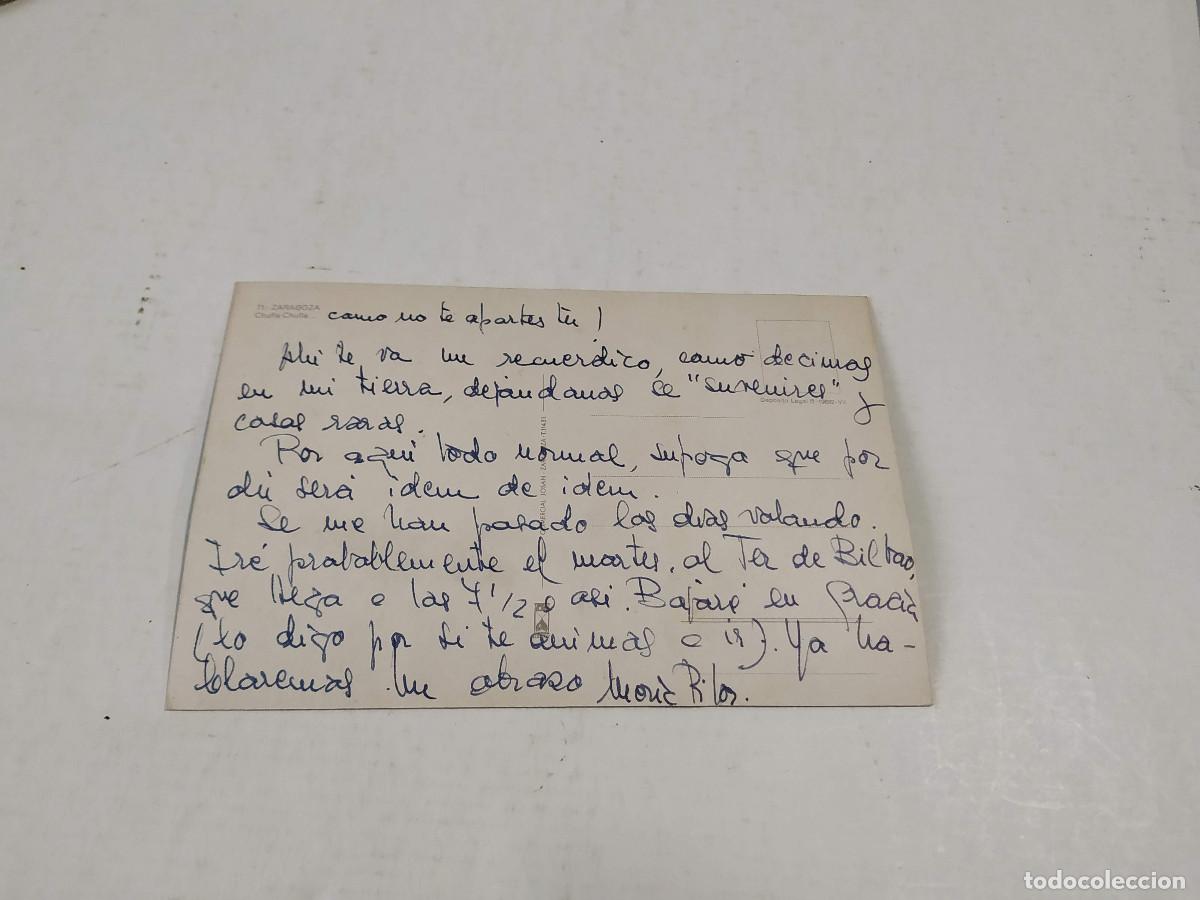 71.- ZARAGOZA
Chufla-Chufla... como no te apartes tu!
Ahí te va un recuerdico, como decimos
en mi tierra, dejándonos de "suvenires" y
cosas raras.
Depósito Legal B.
Por aquí todo normal, supogo que por
ahí será idem de idem.
Se me han pasado los días volando.
Iré probablemente el martes, al Ter de Bilbao,
que llega a las 7 1/2 o así. Bajaré en Gracia
(lo digo por si te animas a ir). Ya ha-
blaremos. Un abrazo María Pilar.
COMERCIAL JOSAN - ZARAGOZA
todocoleccion